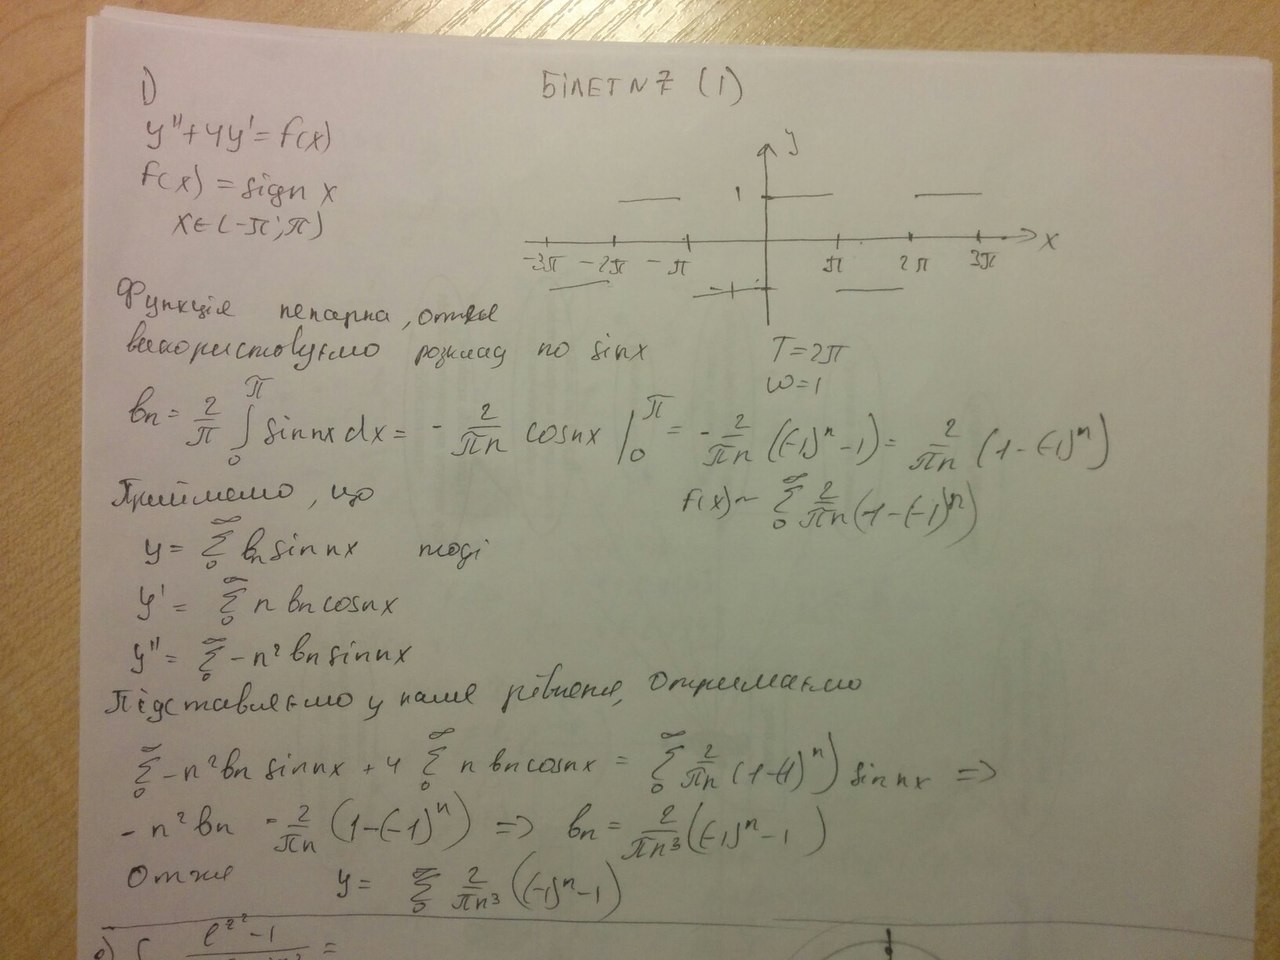 БІЛЕТ N 7 (1)
1)
y'' + 4y' = f(x)
f(x) = sign x
x ∈ (-π; π)
y
1
x
-3π -2π -π π 2π 3π
Функція непарна, отже
використовуємо розклад по sin x
T = 2π
ω = 1
bn = 2/π ∫₀^π sin nx dx = - 2/πn cos nx |₀^π = - 2/πn ((-1)^n - 1) = 2/πn (1 - (-1)^n)
Приймемо, що
f(x) ~ ∑₀^∞ 2/πn (1 - (-1)^n)
y = ∑₀^∞ bn sin nx тоді
y' = ∑₀^∞ n bn cos nx
y'' = ∑₀^∞ - n² bn sin nx
Підставляємо у наше рівняння, отримаємо
∑₀^∞ - n² bn sin nx + 4 ∑₀^∞ n bn cos nx = ∑₀^∞ 2/πn (1 - (-1)^n) sin nx =>
- n² bn = 2/πn (1 - (-1)^n) => bn = 2/πn³ ((-1)^n - 1)
Отже y = ∑₀^∞ 2/πn³ ((-1)^n - 1)